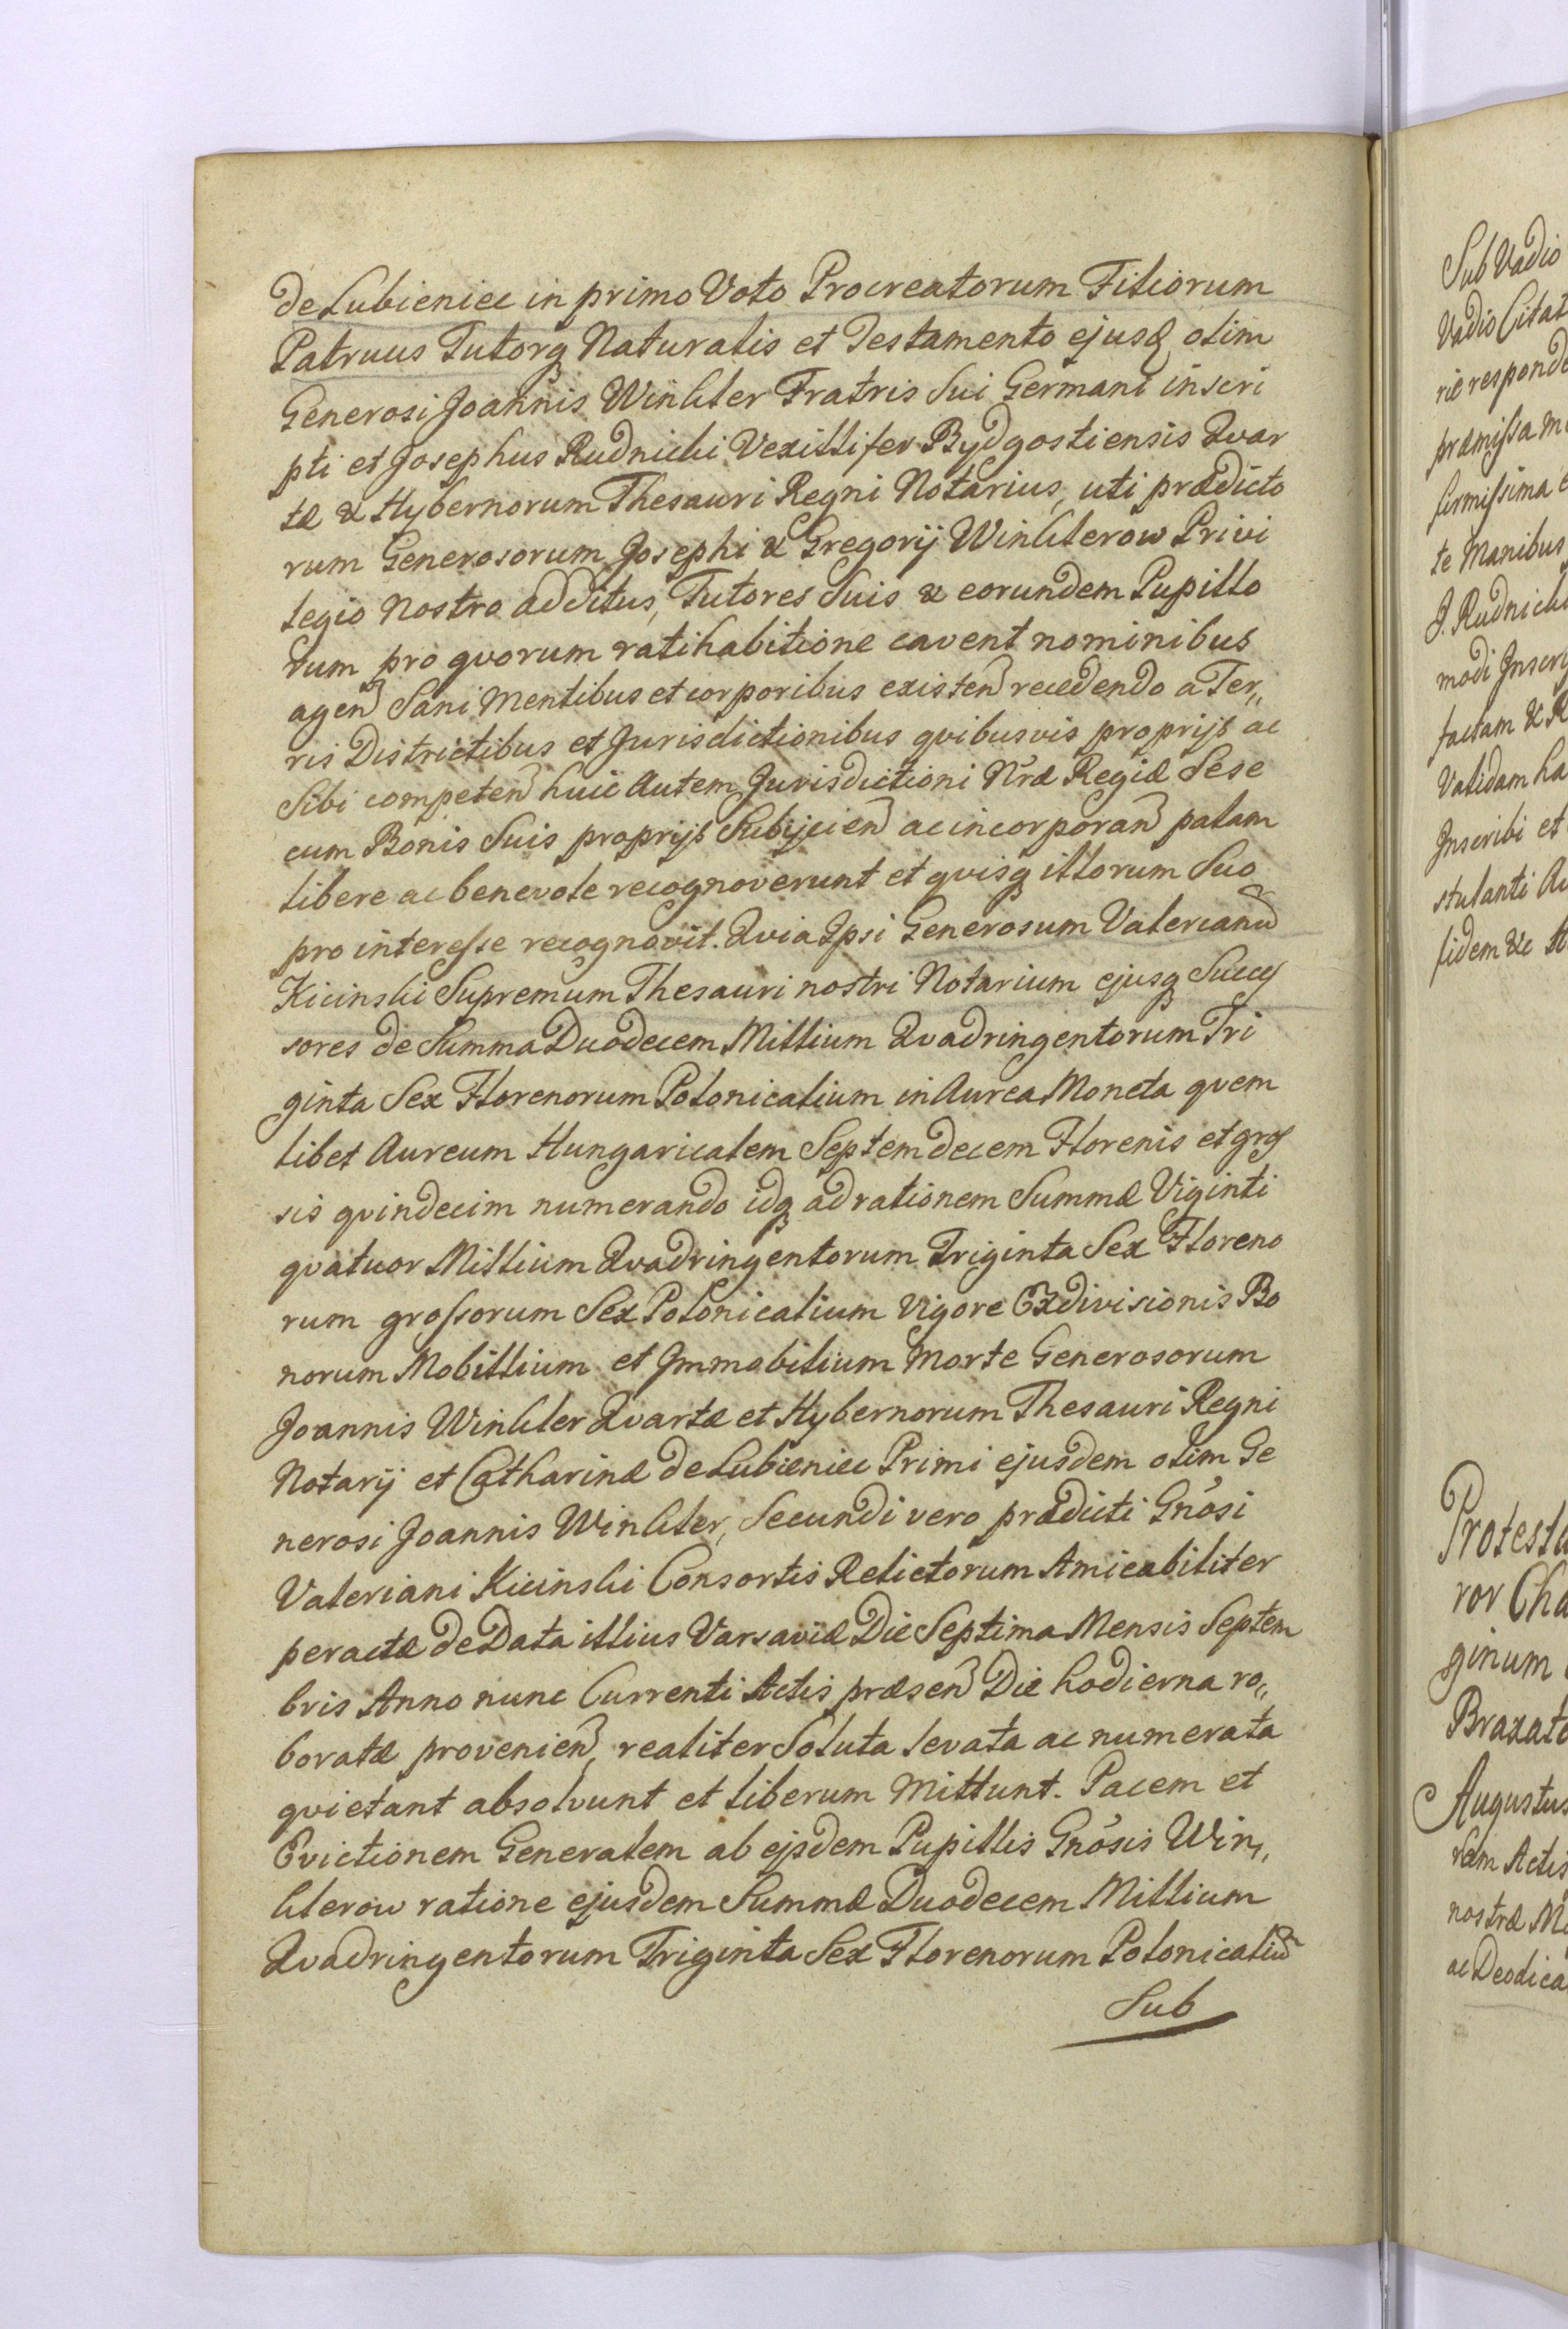 de Lubieniec in primo Voto Procreatorum Filiorum
Patruus Tutorq Naturalis et Testamento ejusd olim
Generosi Joannis Winkler Fratris Sui Germani inscri
pti et Josephus Rudnicki Vexillifer Bydgostiensis Qvar
tæ & Hybernorum Thesauri Regni Notarius, uti prædicto
rum Generosorum Josephi & Gregorij Winklerow Privi
legio Nostro additus, Tutores Suis & eorundem Pupillo
rum pro qvorum ratihabitione cavent nominibus
agen Sani Mentibus et corporibus existen recedendo a Ter„
ris Districtibus et Jurisdictionibus qvibusvis proprijs ac
Sibi competen huic Autem Jurisdictioni Nræ Regiæ Sese
cum Bonis Suis proprijs Subijcien ac incorporan palam
libere ac benevole recognoverunt et qvisq illorum Suo
pro interesse recognovit. Qvia Ipsi Generosum Valerianu
Kicinski Supremum Thesauri nostri Notarium ejusq Succes
sores de Summa Duodecem Millium Qvadringentorum Tri
ginta Sex Florenorum Polonicalium in Aurea Moneta qvem
libet Aureum Hungaricalem Septemdecem Florenis et gros
sis qvindecim numerando idq ad rationem Summæ Viginti
qvatuor Millium Qvadringentorum Triginta Sex Floreno
rum grossorum Sex Polonicalium Vigore Exdivisionis Bo
norum Mobillium et Immobilium Morte Generosorum
Joannis Winkler Qvartæ et Hybernorum Thesauri Regni
Notarij et Catharinæ de Lubieniec Primi ejusdem olim Ge
nerosi Joannis Winkler, Secundi vero prædicti Gnosi
Valeriani Kicinski Consortis Relictorum Amicabiliter
peractæ de Data illius Varsaviæ Die Septima Mensis Septem
bris Anno nunc Currenti Actis præsen Die hodierna ro„
boratæ provenien, realiter Soluta levata ac numerata
qvietant absolvunt et liberum Mittunt. Pacem et
Evictionem Generalem ab ejsdem Pupillis Gnosis Win„
klerow ratione ejusdem Summæ Duodecem Millium
Qvadringentorum Triginta Sex Florenorum Polonicaliu
Sub
Sub Vadio
Vadio Citat
rie responde
præmissa
firmissima
te Manibus
J. Rudnicki
modi Inscri
factam & R
Validam ha
Inscribi et
stulanti
fidem &c
Protesta
ror Cha
ginum
Braxato
Augustus
Actis
nostræ
ac Deodica